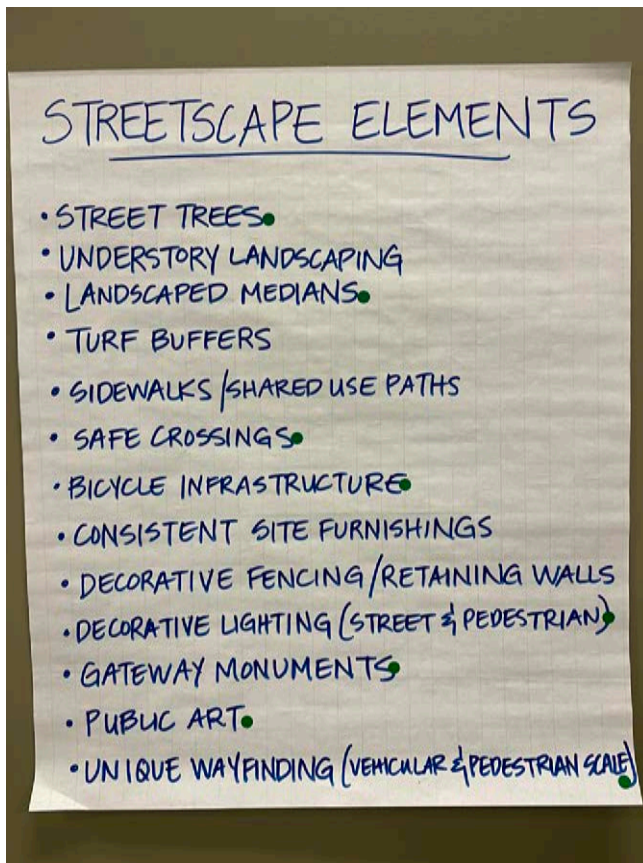 STREETSCAPE ELEMENTS
• STREET TREES
• UNDERSTORY LANDSCAPING
• LANDSCAPED MEDIANS
• TURF BUFFERS
• SIDEWALKS/SHARED USE PATHS
• SAFE CROSSINGS
• BICYCLE INFRASTRUCTURE
• CONSISTENT SITE FURNISHINGS
• DECORATIVE FENCING/RETAINING WALLS
• DECORATIVE LIGHTING (STREET & PEDESTRIAN)
• GATEWAY MONUMENTS
• PUBLIC ART
• UNIQUE WAYFINDING (VEHICULAR & PEDESTRIAN SCALE)